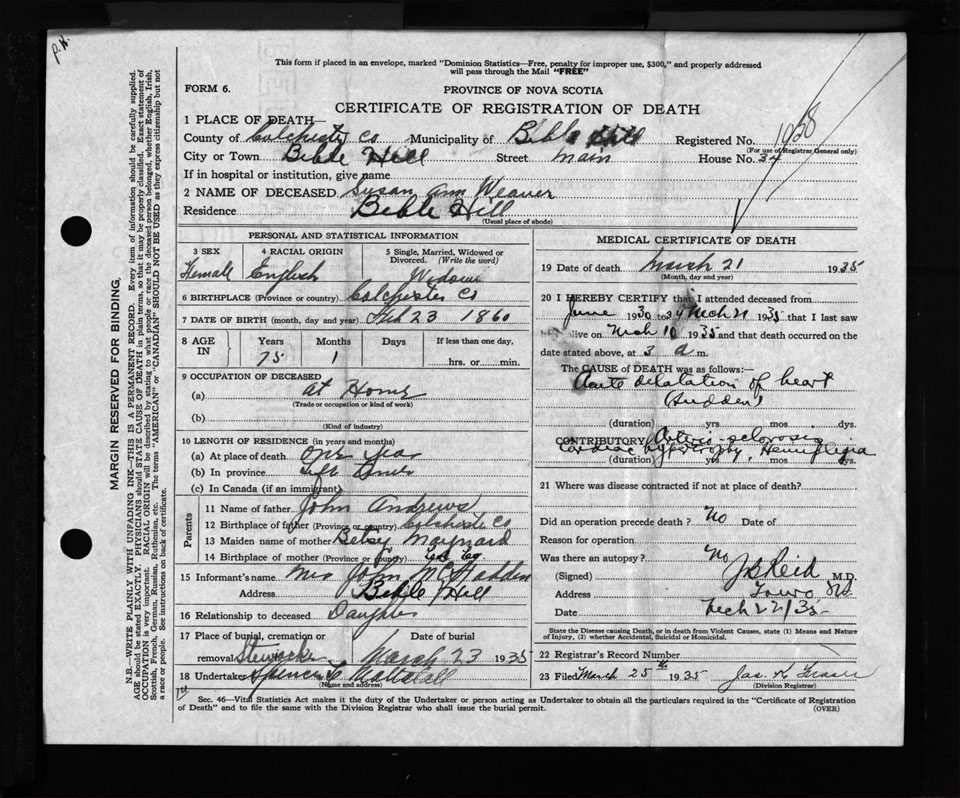 P.H.
This form if placed in an envelope, marked "Dominion Statistics—Free, penalty for improper use, $300," and properly addressed
will pass through the Mail "FREE"
FORM 6.
PROVINCE OF NOVA SCOTIA
CERTIFICATE OF REGISTRATION OF DEATH
1 PLACE OF DEATH—
County of Colchester Co Municipality of Bible Hill Registered No. 1968
(For use of Registrar General only)
City or Town Bible Hill Street Main House No. 34
If in hospital or institution, give name
2 NAME OF DECEASED Susan Ann Weaver
Residence Bible Hill
(Usual place of abode)
PERSONAL AND STATISTICAL INFORMATION
3 SEX 4 RACIAL ORIGIN 5 Single, Married, Widowed or
Divorced. (Write the word)
Female English Widow
6 BIRTHPLACE (Province or country) Colchester Co
7 DATE OF BIRTH (month, day and year) Feb 23 1860
8 AGE IN Years Months Days If less than one day,
75 1 hrs. or min.
9 OCCUPATION OF DECEASED
(a) At Home
(Trade or occupation or kind of work)
(b)
(Kind of industry)
10 LENGTH OF RESIDENCE (in years and months)
(a) At place of death one year
(b) In province Life
(c) In Canada (if an immigrant)
Parents
11 Name of father John Andrews
12 Birthplace of father (Province or country) Colchester Co
13 Maiden name of mother Betsy Maynard
14 Birthplace of mother (Province or country)
15 Informant's name Mrs John McFadden
Address Bible Hill
16 Relationship to deceased Daughter
17 Place of burial, cremation or Date of burial
removal Stewiacke March 23 1935
18 Undertaker Spencer
(Name and address)
MEDICAL CERTIFICATE OF DEATH
19 Date of death March 21 1935
(Month, day and year)
20 I HEREBY CERTIFY that I attended deceased from
June 1930 to Mch 21 1935 that I last saw
alive on Mch 10 1935 and that death occurred on the
date stated above, at 3 a m.
The CAUSE OF DEATH was as follows:—
Acute dilatation of heart
(Sudden)
(duration) yrs. mos. dys.
CONTRIBUTORY Arterio-sclerosis
Cardiac hypertrophy, Hemiplegia
(duration) yrs mos dys.
21 Where was disease contracted if not at place of death?
Did an operation precede death? No Date of
Reason for operation
Was there an autopsy? No
(Signed) J S Reid M.D.
Address Truro N.S.
Date Mch 22/35
State the Disease causing Death, or in death from Violent Causes, state (1) Means and Nature
of Injury, (2) whether Accidental, Suicidal or Homicidal.
22 Registrar's Record Number
23 Filed March 25th 1935 Jas K Fraser
(Division Registrar)
Sec. 46—Vital Statistics Act makes it the duty of the Undertaker or person acting as Undertaker to obtain all the particulars required in the "Certificate of Registration
of Death" and to file the same with the Division Registrar who shall issue the burial permit. (OVER)
MARGIN RESERVED FOR BINDING.
N.B.—WRITE PLAINLY WITH UNFADING INK—THIS IS A PERMANENT RECORD. Every item of information should be carefully supplied.
AGE should be stated EXACTLY. PHYSICIANS should STATE CAUSE OF DEATH in plain terms, so that it may be properly classified. Exact statement of
OCCUPATION is very important. RACIAL ORIGIN will be described by stating to what people or race the deceased person belonged, whether English, Irish,
Scottish, French, German, Russian, Ruthenian, etc. The terms "AMERICAN" or "CANADIAN" SHOULD NOT BE USED as they express citizenship but not
a race or people. See instructions on back of certificate.